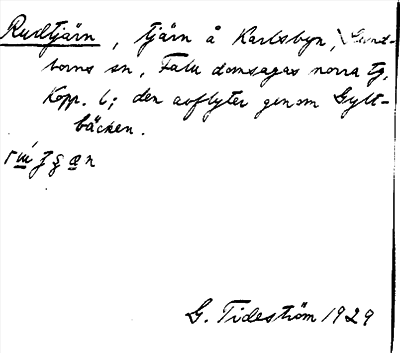 Rudtjärn, tjärn å Karlsbyn, Sund-
borns sn, Falu domsagas norra tg,
Kopp. l; den avflyter genom Gylt-
bäcken.
G. Tideström 1929